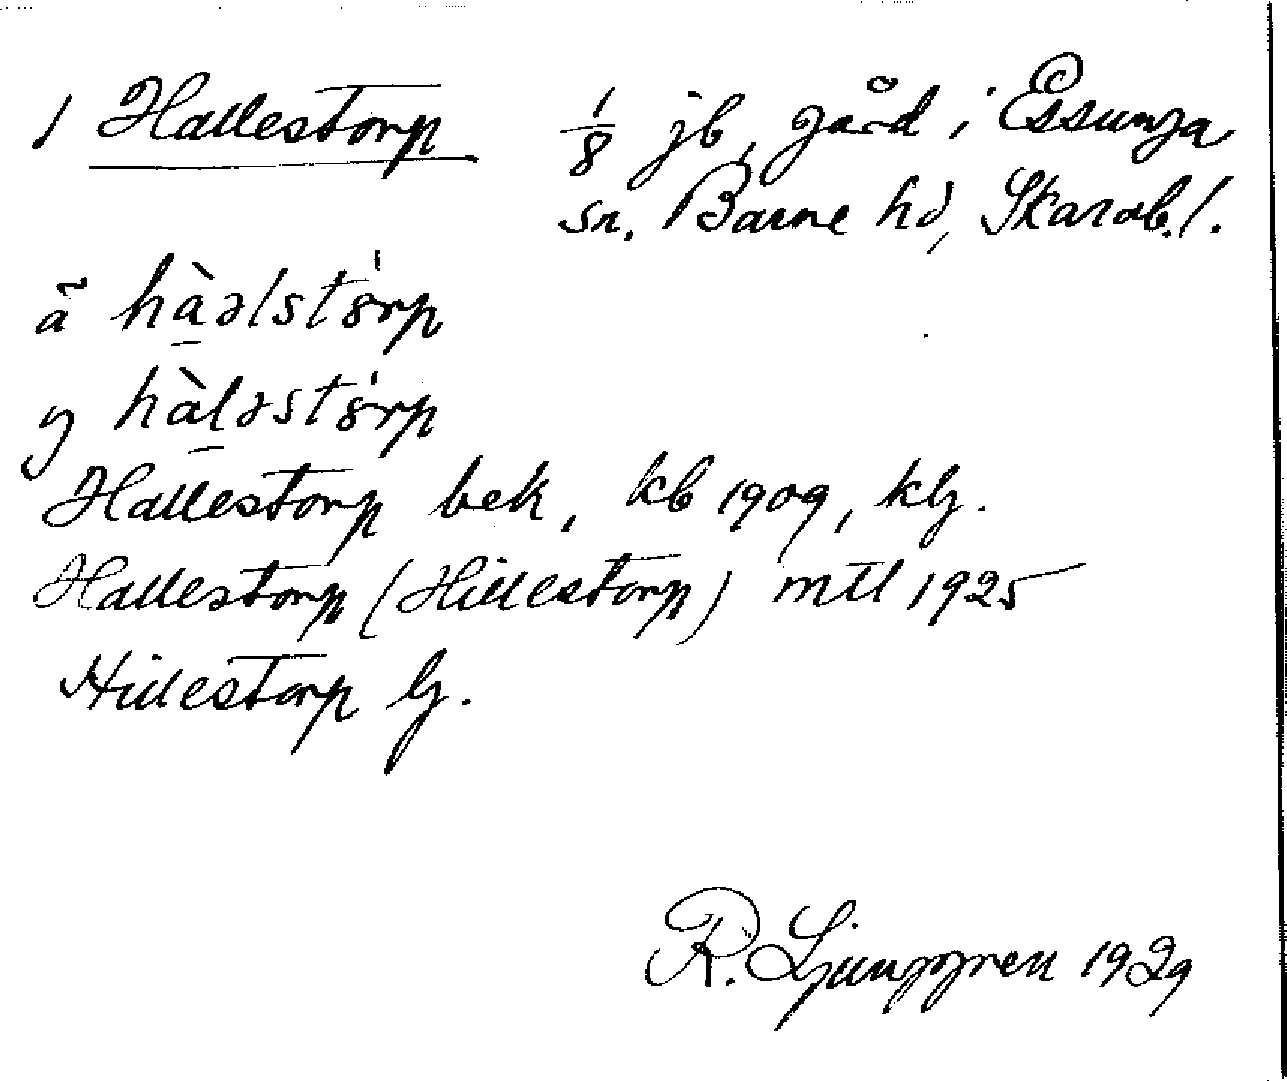 1 Hallestorp 1/8 jb, gård i Essunga
sn. Barne hd, Skarab. l.
ä hàəlstórp
y hàləstórp
Hallestorp bek, kb 1909, klj.
Hallestorp (Hillestorp) mtl 1925
Hillestorp lj.
R. Ljunggren 1929